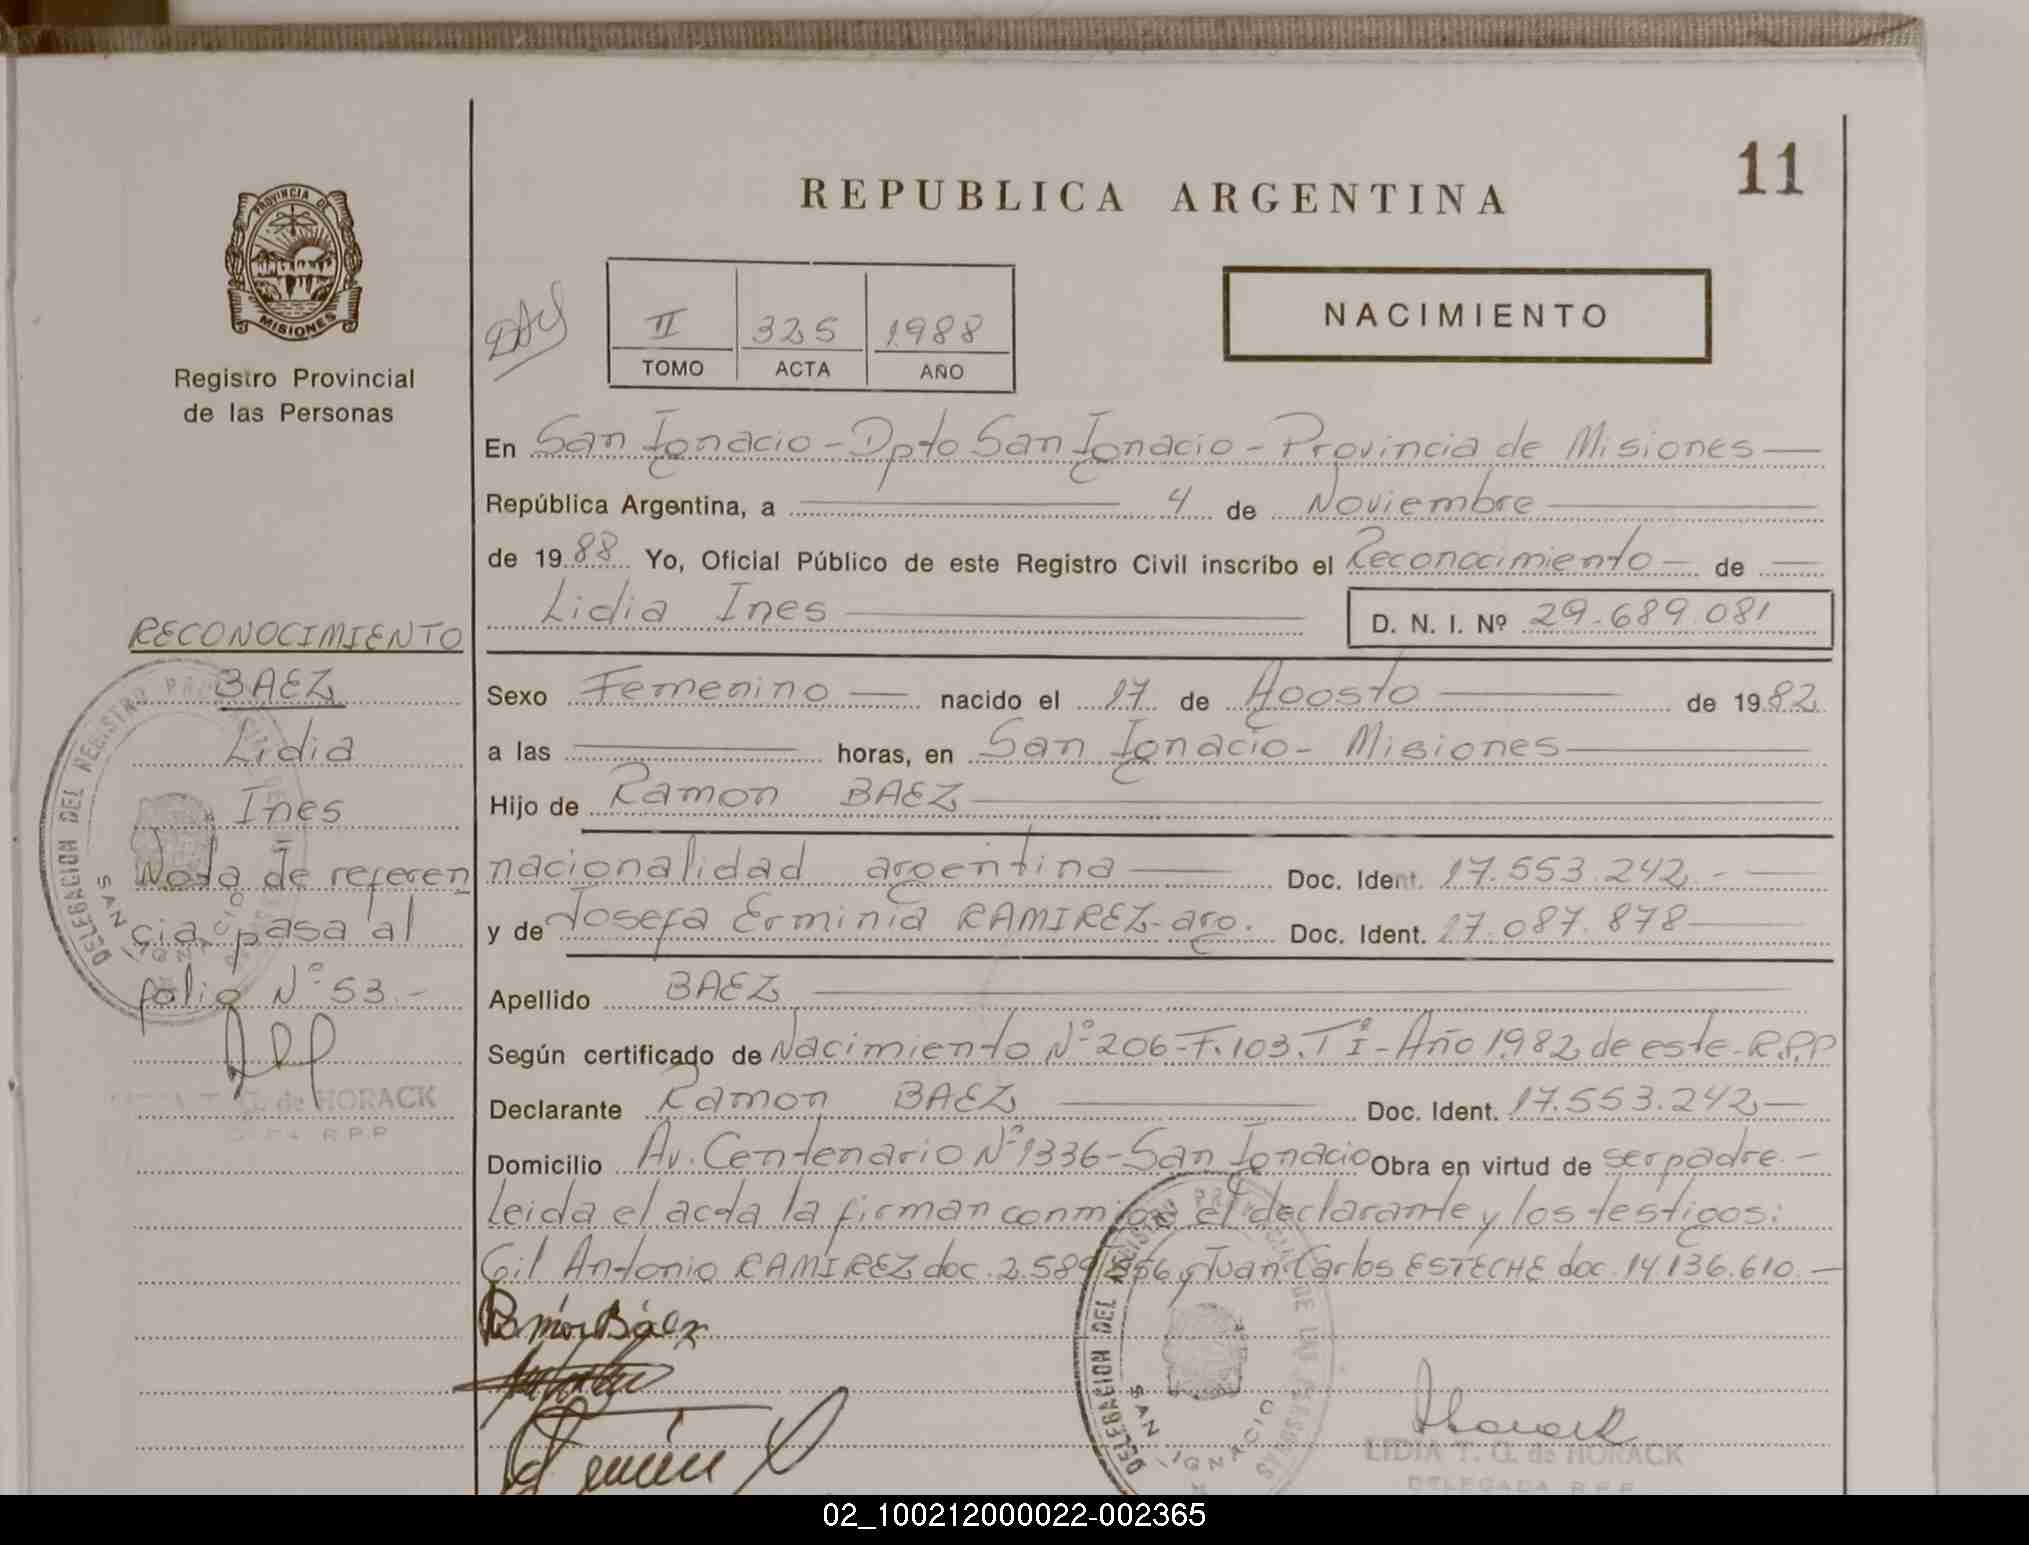 11
REPUBLICA ARGENTINA
PROVINCIA DE
MISIONES
Registro Provincial
de las Personas
II 325 1988
TOMO ACTA AÑO
NACIMIENTO
En San Ignacio - Dpto San Ignacio - Provincia de Misiones
República Argentina, a 4 de Noviembre
de 1988 Yo, Oficial Público de este Registro Civil inscribo el Reconocimiento de
Lidia Ines D. N. I. Nº 29.689.081
Sexo Femenino nacido el 17 de Agosto de 1982
a las horas, en San Ignacio - Misiones
Hijo de Ramon BAEZ
nacionalidad argentina Doc. Ident. 17.553.242.-
y de Josefa Erminia RAMIREZ-arg. Doc. Ident. 17.087.878
Apellido BAEZ
Según certificado de Nacimiento Nº 206-F.103.Tº I-Año 1982 de este R.P.P
Declarante Ramon BAEZ Doc. Ident. 17.553.242
Domicilio Av. Centenario Nº 1336-San Ignacio Obra en virtud de ser padre.-
Leida el acta la firman conmigo el declarante y los testigos:
Gil Antonio RAMIREZ doc. y Juan Carlos ESTECHE doc. 14.136.610.-
Ramón Báez
RECONOCIMIENTO
BAEZ
Lidia
Ines
Nota de referen
cia pasa al
folio Nº 53.-
T. G. de HORACK
R.P.P
DELEGACION DEL REGISTRO PROVINCIAL DE LAS PERSONAS
SAN IGNACIO
DELEGACION DEL REGISTRO PROVINCIAL DE LAS PERSONAS
SAN IGNACIO
LIDIA T. G. de HORACK
DELEGADA R.P.P.
02_100212000022-002365